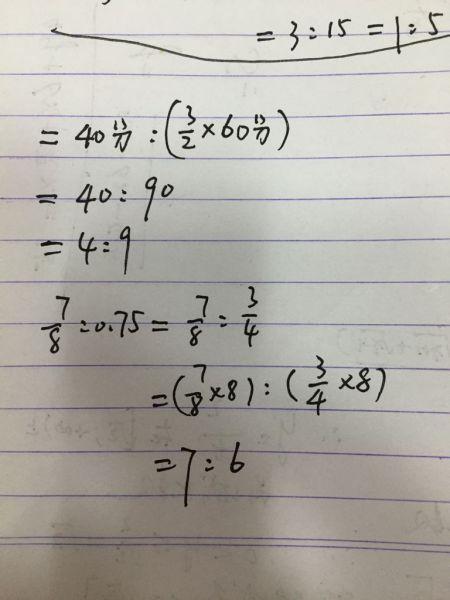 = 3:15 = 1:5
= 40分:(3/2×60分)
= 40:90
= 4:9
7/8:0.75 = 7/8:3/4
= (7/8×8):(3/4×8)
= 7:6